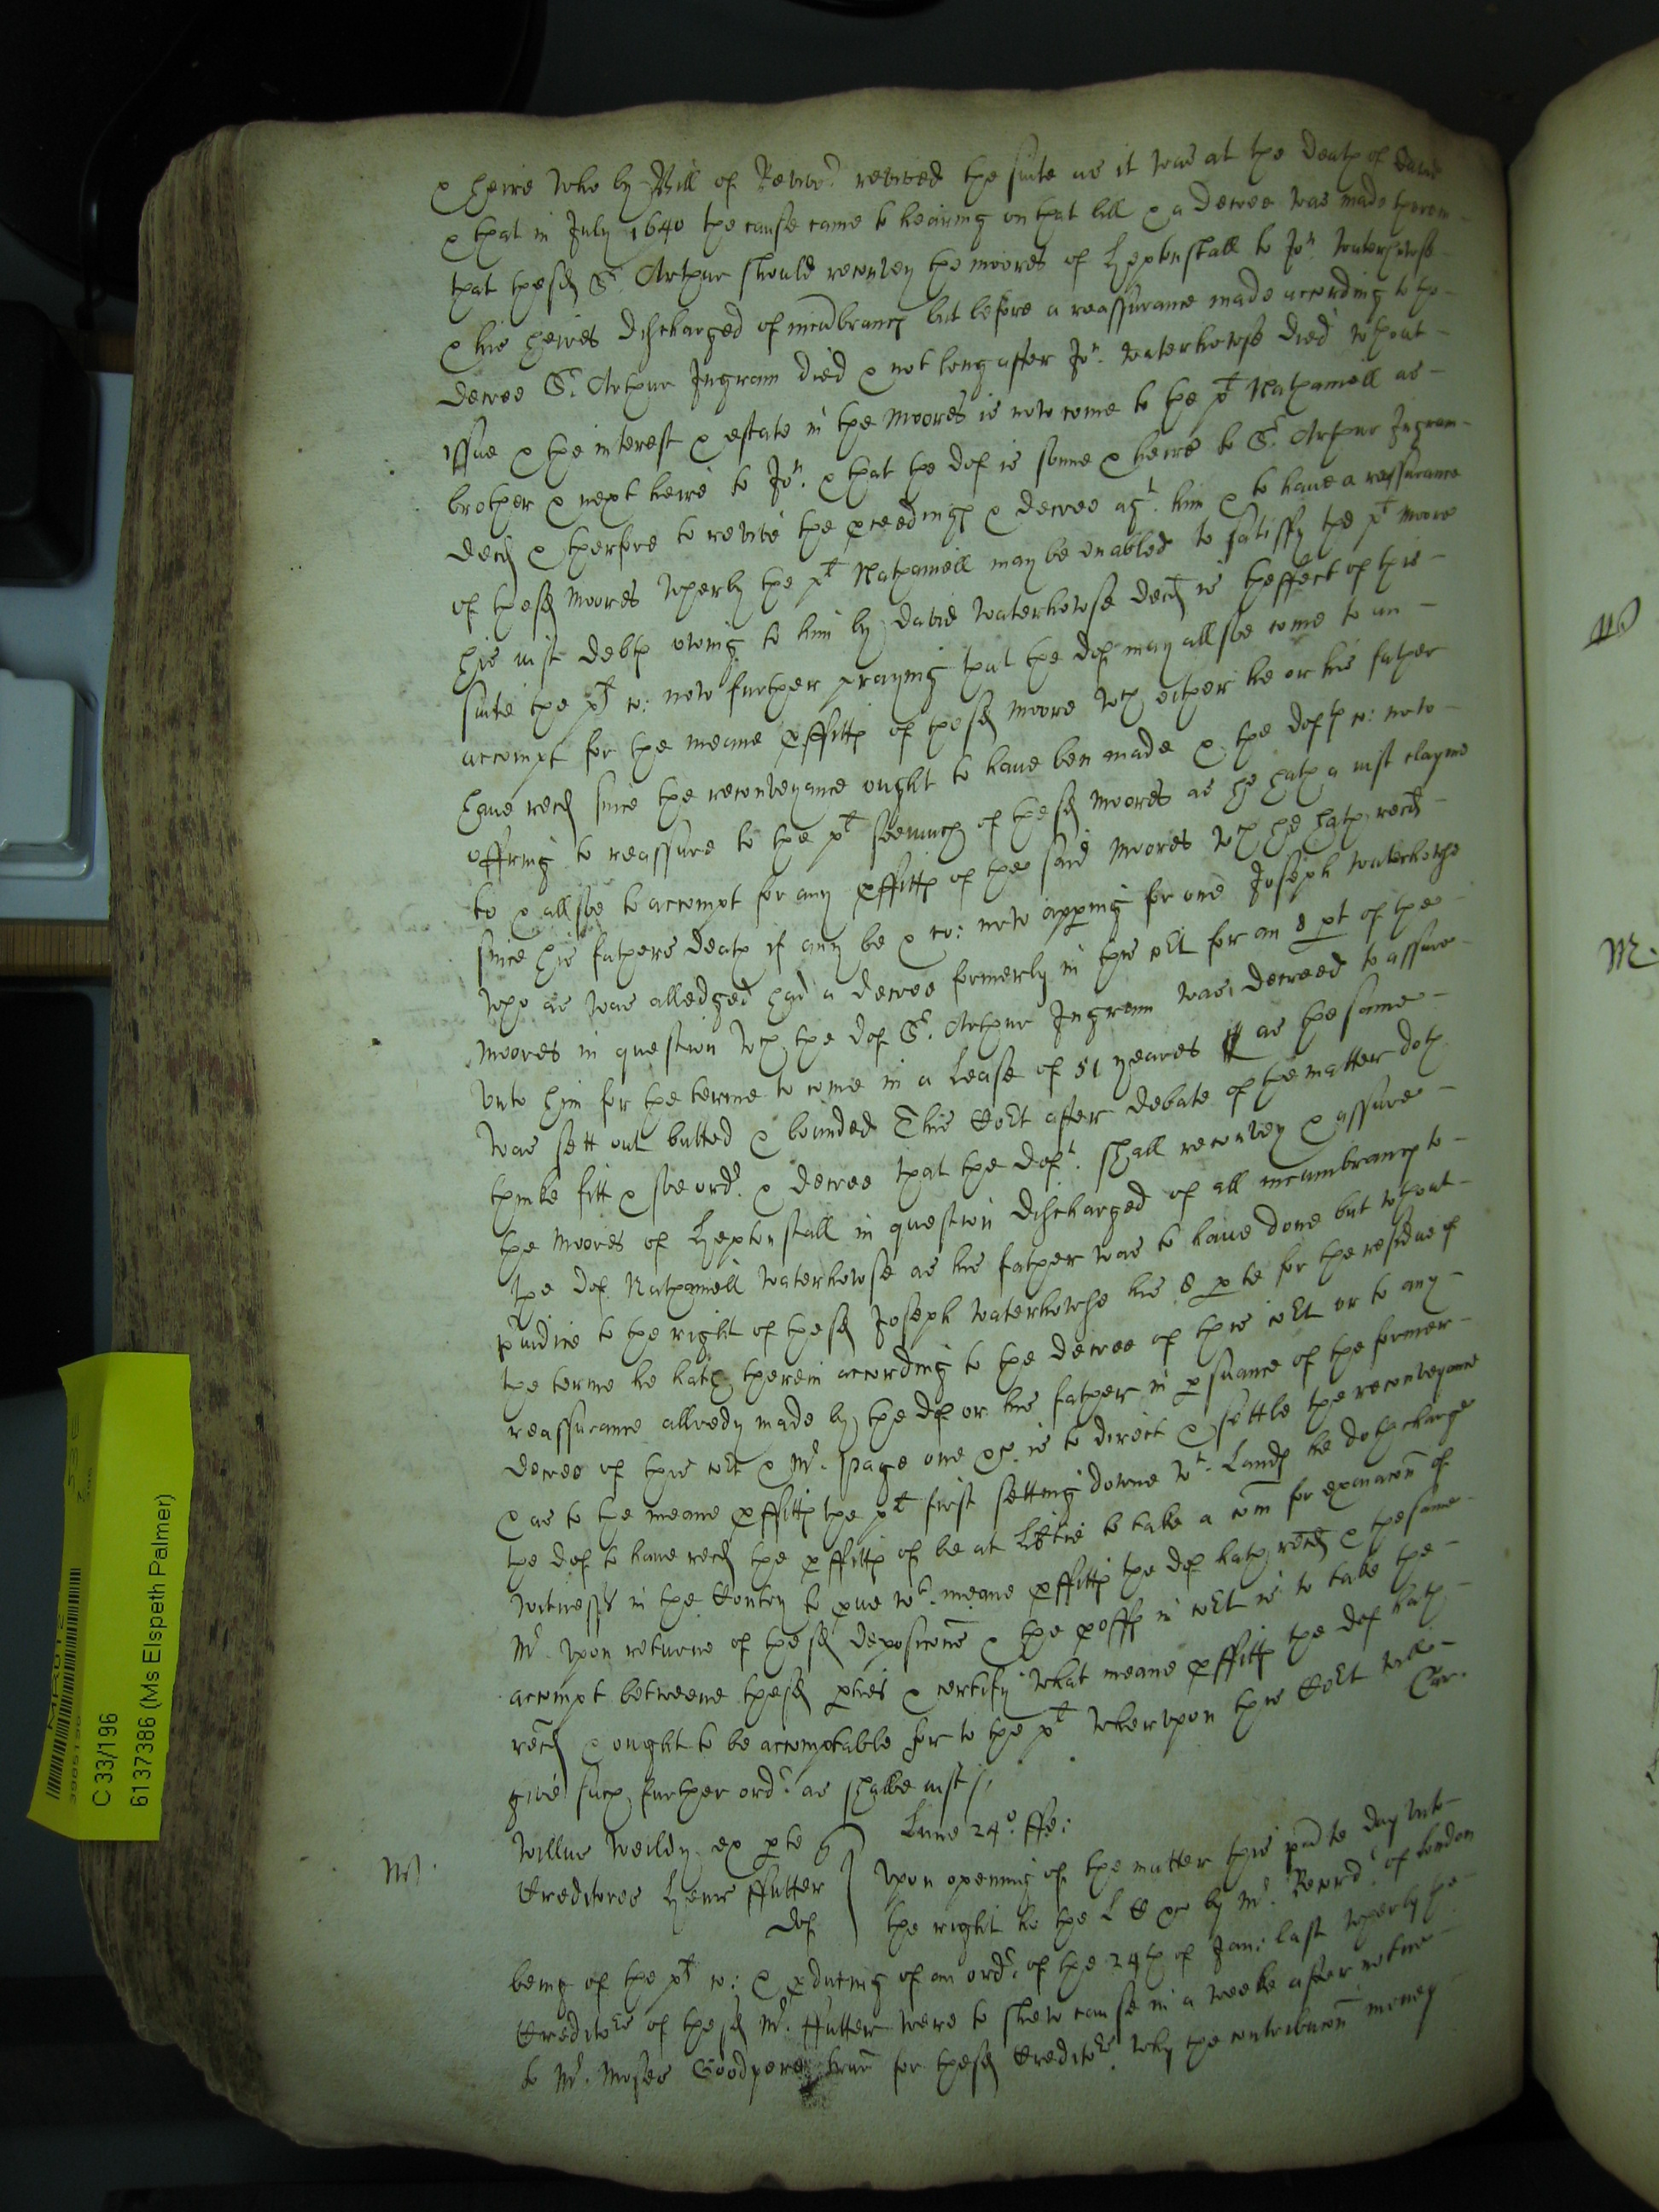 & heire who by Bill of Revivor revived the suite as it was at the death of David
& that in July 1640 the cause came to hearing on that bill & a decree was made therein
that thesd Sr. Arthur should reconvey the moores of Heptonstall to Jon. Waterhowse
& his heires discharged of incumbrances but before a reassurance made according to the
decree Sr. Arthur Ingram died & not long after Jon. Waterhowse died without
yssue & the interest & estate in the Moores is now come to the plt Nathaniell as
brother & next heire to Jon. & that the def is sonne & heire to Sr. Arthur Ingram
decd & therfore to revive the proceedings & decree agt. him & to have a reassurance
of thesd moores wherby the plt Nathaniell may be enabled to satisfy the plt Moore
his iust debts owing to him by David Waterhowse decd is theffect of this
suite the plt co: now further praying that the def may allsoe come to an
accompt for the meane proffitts of thesd moore wch either he or his father
have recd since the reconveyance ought to have ben made & the defts co: now
offring to reassure to the plt soe much of thesd Moores as he hath a iust clayme
to & allsoe to accompt for any proffitts of the said Moores wch he hath recd
since his fathers death if any be & co: now appering for one Joseph Waterhowse
who as was alledged had a decree formerly in this Cort for an 8 pt of the
moores in question wch the def Sr. Arthur Ingram was decreed to assure
unto him for the terme to come in a Lease of 51 yeares as the same
was sett out butted & bounded This Cort after debate of the matter doth
thinke fitt & soe ordr. & decree that the deft. shall reconvey & assure
the Moores of Heptonstall in question discharged of all incumbrances to
the def Nathaniell Waterhowse as his father was to have done but without
preiudice to the right of thesd Joseph Waterhowse his 8 parte for the residue of
the terme he hath therein according to the decree of this Cort or to any
reassurance allredy made by the def or his father in pursuance of the former
decree of this Cort & Mr. Page one &c. is to direct & settle the reconveyance
& as to the meane proffitts the plt first setting downe wt. Lands he doth charge
the def to have recd the proffitts of be at libtie to take a com for exaiacon of
witnesses in the Contry to prove wt. meane proffitts the def hath recd & thesame
Mr. upon returne of thesd deposicons & the proffs in Cort is to take the
accompt betweene thesd pties & certify what meane proffitts the def hath
recd & ought to be accomptable for to the plt wherupon this Cort will
give such further ordr. as shalbe iust Car.
Lune 24o. ffe:
M.
Willus Weildy ex parte
Creditores Henr ffutter
Def
Upon opening of the matter this pnte day unto
the right ho the L C &c by Mr. Recordr. of London
being of the plt co: & produceing of an ordr. of the 24th of Jan: last wherby the
Creditors of thesd Mr. ffutter were to shew cause in a weeke after notice
to Mr. Moses Goodyere for thesd Creditors why the contribucon money
C 33/196
6137386 (Ms Elspeth Palmer)
M.